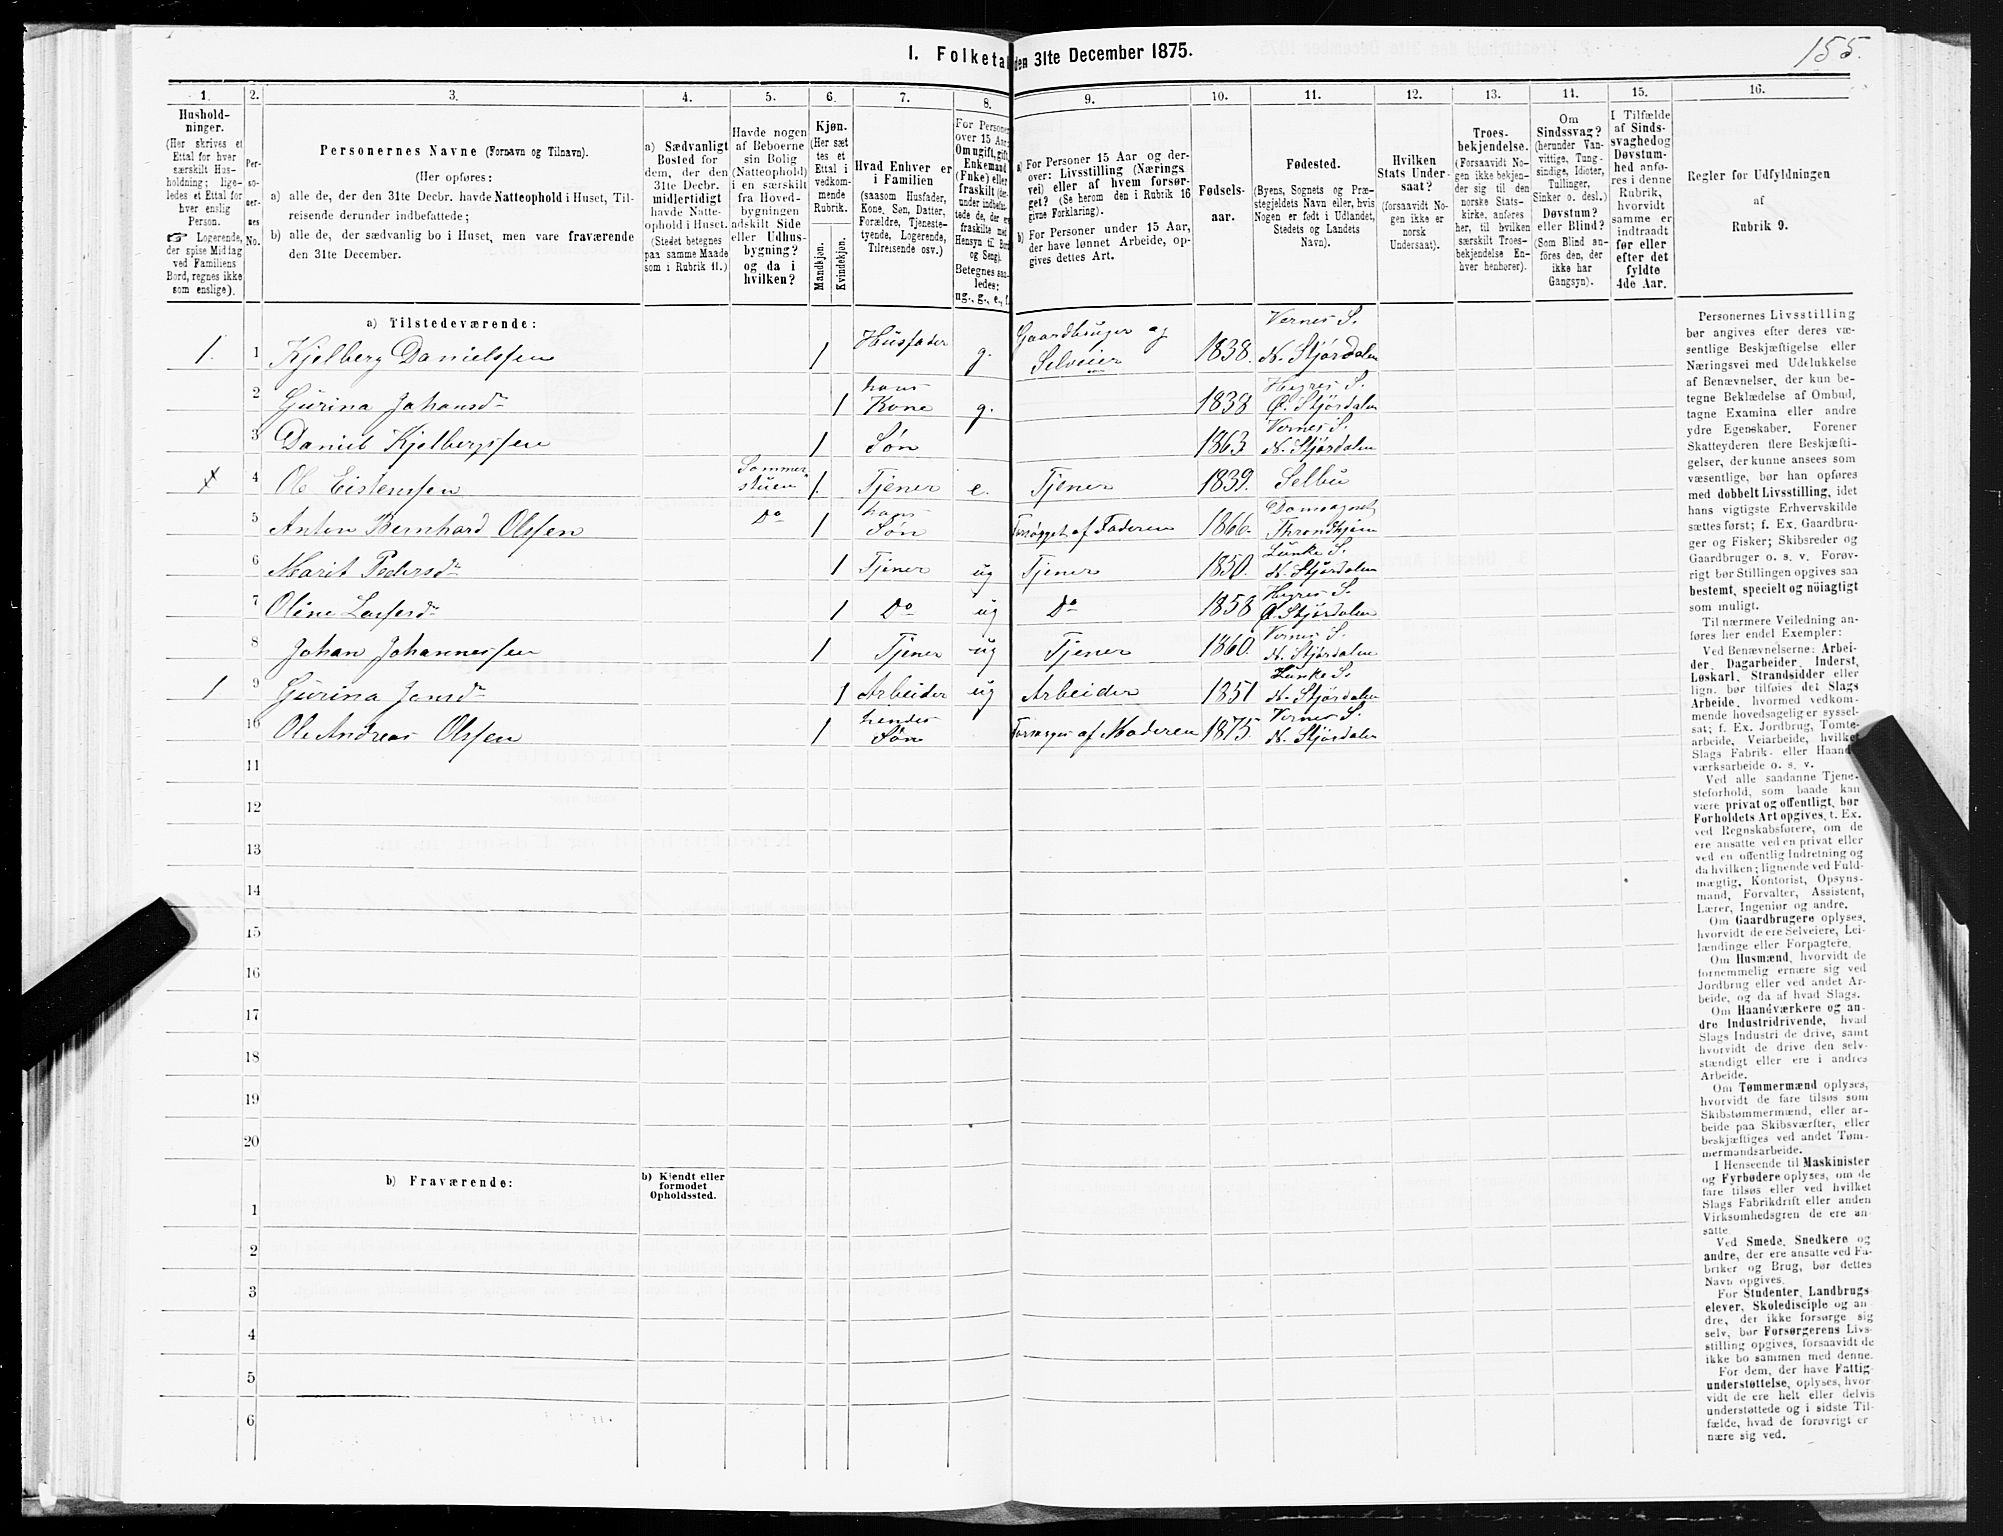 155.
I. Folketal den 31te December 1875.
1. 2. 3. 4. 5. 6. 7. 8. 9. 10. 11. 12. 13. 14. 15. 16.
Hushold-
ninger.
(Her skrives et
Ettal for hver
særskilt Hus-
holdning; lige-
ledes et Ettal for
hver enslig
Person.
☞ Logerende,
der spise Middag
ved Familiens
Bord, regnes ikke
som enslige).
Per-
so-
ner-
nes
No.
Personernes Navne (Fornavn og Tilnavn).
(Her opføres:
a) alle de, der den 31te Decbr. havde Natteophold i Huset, Til-
reisende derunder indbefattede;
b) alle de, der sædvanlig bo i Huset, men vare fraværende
den 31te December.
a) Sædvanligt
Bosted for
dem, der den
31te Decbr.
midlertidigt
havde Natte-
ophold i Huset.
(Stedet betegnes
paa samme Maade
som i Rubrik 11.)
Havde nogen
af Beboerne
sin Bolig
(Natteophold)
i en særskilt
fra Hoved-
bygningen
adskilt Side
eller Udhus-
bygning?
og da i
hvilken?
Kjøn.
(Her sæt
tes et
Ettal i
vedkom-
mende
Rubrik.
Mandkjøn.
Kvindekjøn.
Hvad Enhver er
i Familien
(saasom Husfader,
Kone, Søn, Datter,
Forældre, Tjeneste-
tyende, Logerende,
Tilreisende osv.)
For Personer
over 15 Aar:
Om ugift, gift,
Enkemand
(Fnke) eller
fraskilt (der-
under indbefat-
tede de, der ere
fraskilte med
Hensyn til Bord
og Seng).
Betegnes saa-
ledes:
ug., g., e., f.
a) For Personer 15 Aar og der-
over: Livsstilling (Nærings
vei) eller af hvem forsør-
get? (Se herom den i Rubrik 16
givne Forklaring).
b) For Personer under 15 Aar,
der have lønnet Arbeide, op-
gives dettes Art.
Fødsels-
aar.
Fødested.
(Byens, Sognets og Præ-
stegjeldets Navn eller, hvis
Nogen er født i Udlandet,
Stedets og Landets
Navn).
Hvilken
Stats Under-
saat?
(forsaavidt No-
gen ikke er
norsk
Undersaat).
Troes-
bekjendelse.
(Forsaavidt No-
gen ikke bekjen-
der sig til den
norske Stats-
kirke, anføres
her, til hvilken
særskilt Troes-
bekjendelse En-
hver henhører).
Om
Sindssvag?
(herunder Van-
vittige, Tung-
sindige, Idioter,
Tullinger,
Sinker o. desl.)
Døvstum?
eller Blind?
(Som Blind an-
føres den, der
ikke har
Gangsyn).
I Tilfælde
af Sinds-
svaghed og
Døvstum-
hed anfø-
res i denne
Rubrik,
hvorvidt
samme er
indtraadt
før eller
efter det
fyldte
4de Aar.
Regler for Udfyldningen
af
Rubrik 9.
a) Tilstedeværende:
1. 1 Kjelberg Danielssen 1 Husfader g. Gaardbruger og Selveier 1838. Vernes S. N. Stjørdalen
2 Gurina Johansdr 1 hans Kone g. 1838 Hegres S. Ø. Stjørdalen
3 Daniel Kjelbergssen 1 Søn 1863 Vernes S. N. Stjørdalen
4 Ole Eistenssen Sommerstuen 1. Tjener e. Tjener 1839. Selbu
5 Anton Bernhard Olssen Do 1 hans Søn Forsørget af Faderen 1866. Throndhjem
6 Marit Pedersdr 1 Tjener ug Tjener 1850. Lunke S. N. Stjørdalen
7 Oline 1 Do ug Do 1858 Hegres S. Ø. Stjørdalen
8 Johan Johannessen 1 Tjener ug Tjener 1860. Vernes S. N. Stjørdalen
1 9 Gurina Jonsdr 1 Arbeider ug Arbeider 1851 Lunke S. N. Stjørdalen
10 Ole Andreas Olssen 1 hendes Søn Forsørges af Moderen 1875. Vernes S. N. Stjørdalen
11
12
13
14
15
16
17
18
19
20
b) Fraværende:
b) Kjendt eller
formodet
Opholdssted.
1
2
3
4
5
6
Personernes Livsstilling
bør angives efter deres væ-
sentlige Beskjæftigelse eller
Næringsvei med Udelukkelse
af Benævnelser, der kun be-
tegne Beklædelse af Ombud,
tagne Examina eller andre
ydre Egenskaber. Forener
Skatteyderen flere Beskjæfti-
gelser, der kunne ansees som
væsentlige, bør han opføres
med dobbelt Livsstilling, idet
hans vigtigste Erhvervskilde
sættes først; f. Ex. Gaardbru-
ger og Fisker; Skibsreder og
Gaardbruger o. s. v. Forøv-
rigt bør Stillingen opgives saa
bestemt, specielt og nöiagtigt
som muligt.
Til nærmere Veiledning an-
føres her endel Exempler:
Ved Benævnelserne: Arbei-
der, Dagarbeider, Inderst,
Løskarl, Strandsidder eller
lign. bør tilføies det Slags
Arbeide, hvormed vedkom-
mende hovedsagelig er syssel-
sat; f. Ex. Jordbrug, Tomte-
arbeide, Veiarbeide, hvilket
Slags Fabrik- eller Haand-
værksarbeide o. s. v.
Ved alle saadanne Tjene-
steforhold, som baade kan
være privat og offentligt, bør
Forholdets Art opgives, t. Ex.
ved Regnskabsførere, om de
ere ansatte ved en privat eller
ved en offentlig Indretning og
da hvilken; lignende ved Fuld-
mægtig, Kontorist, Opsyns-
mand, Forvalter, Assistent,
Lærer, Ingeniør og andre.
Om Gaardbrugere oplyses,
hvorvidt de ere Selveiere, Lei-
lændinge eller Forpagtere.
Om Husmænd, hvorvidt de
fornemmelig ernære sig ved
Jordbrug eller ved andet Ar-
beide, og da af hvad Slags.
Om Haandværkere og an-
dre Industridrivende, hvad
Slags Industri de drive, samt
hvorvidt de drive den selv-
stændigt eller ere i andres
Arbeide.
Om Tømmermænd oplyses,
hvorvidt de fare tilsøs som
Skibstømmermænd, eller ar-
beide paa Skibsværfter, eller
beskjæftiges ved andet Tøm-
mermandsarbeide.
I Henseende til Maskinister
og Fyrbødere oplyses, om de
fare tilsøs eller ved hvilket
Slags Fabrikdrift eller anden
Virksomhedsgren de ere an-
satte.
Ved Smede, Snedkere og
andre, der ere ansatte ved Fa-
briker og Brug, bør dettes
Navn opgives.
For Studenter, Landbrugs-
elever, Skoledisciple og an-
dre, der ikke forsørge sig
selv, bør Forsørgerens Livs-
stilling opgives, forsaavidt de
ikke bo sammen med denne.
For dem, der have Fattig-
understøttelse, oplyses, hvor-
vidt de ere helt eller delvis
understøttede og i sidste Til-
fælde, hvad de forøvrigt er
nære sig ved.